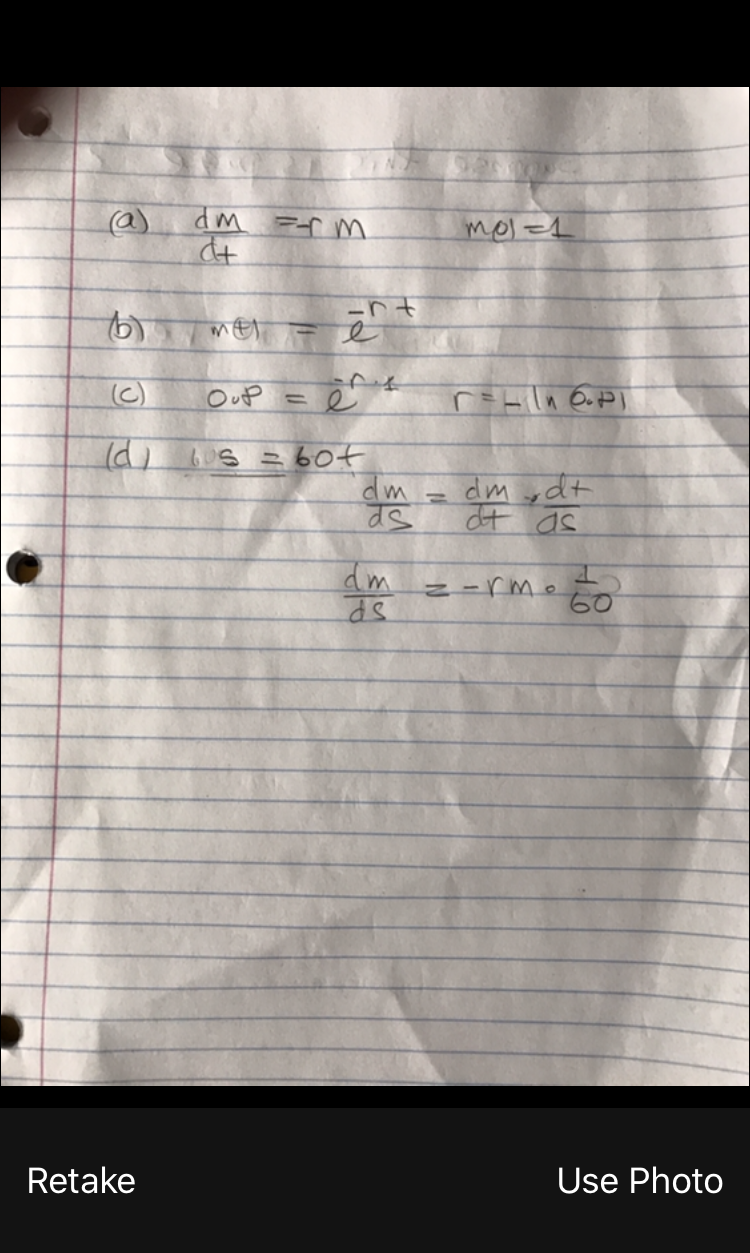 (a) dm/dt = -rm m(0) = 1
(b) m(t) = e^-rt
(c) 0.8 = e^-r·1 r = -ln(0.8)
(d) s = 60t
dm/ds = dm/dt · dt/ds
dm/ds = -rm · 1/60
Retake Use Photo